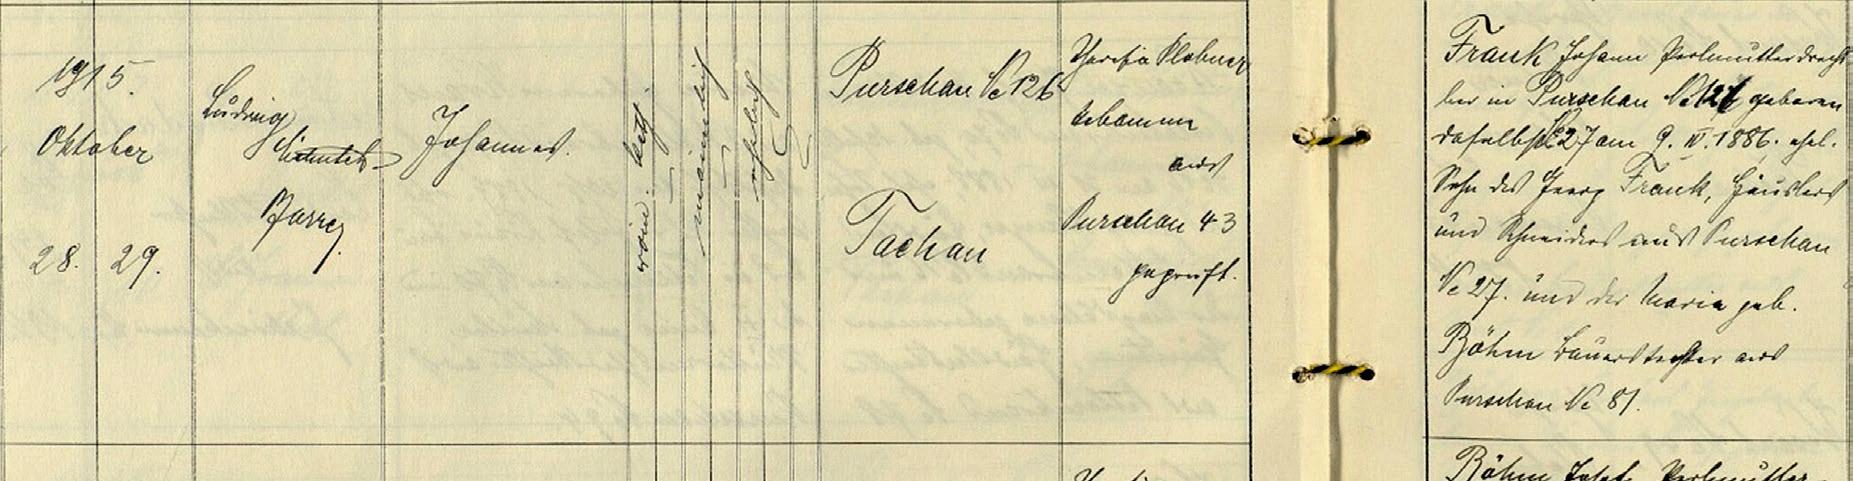 1915.
Oktober
28. 29.
Ludwig
Pfarrer.
Johannes.
röm: kath.
männlich
ehelich
Purschau № 126
Tachau
Theresia Plobner
Hebamme
aus
Purschau 43
geprüft.
Frank Johann Perlmutterdrechs
ler in Purschau № 126 geboren
daselbst 27 am 9. IV. 1886. ehel.
Sohn des Georg Frank, Häuslers
und Schneiders aus Purschau
№ 27. und der Maria geb.
Böhm Bauerstochter aus
Purschau № 81.
Böhm Josef Perlmutter